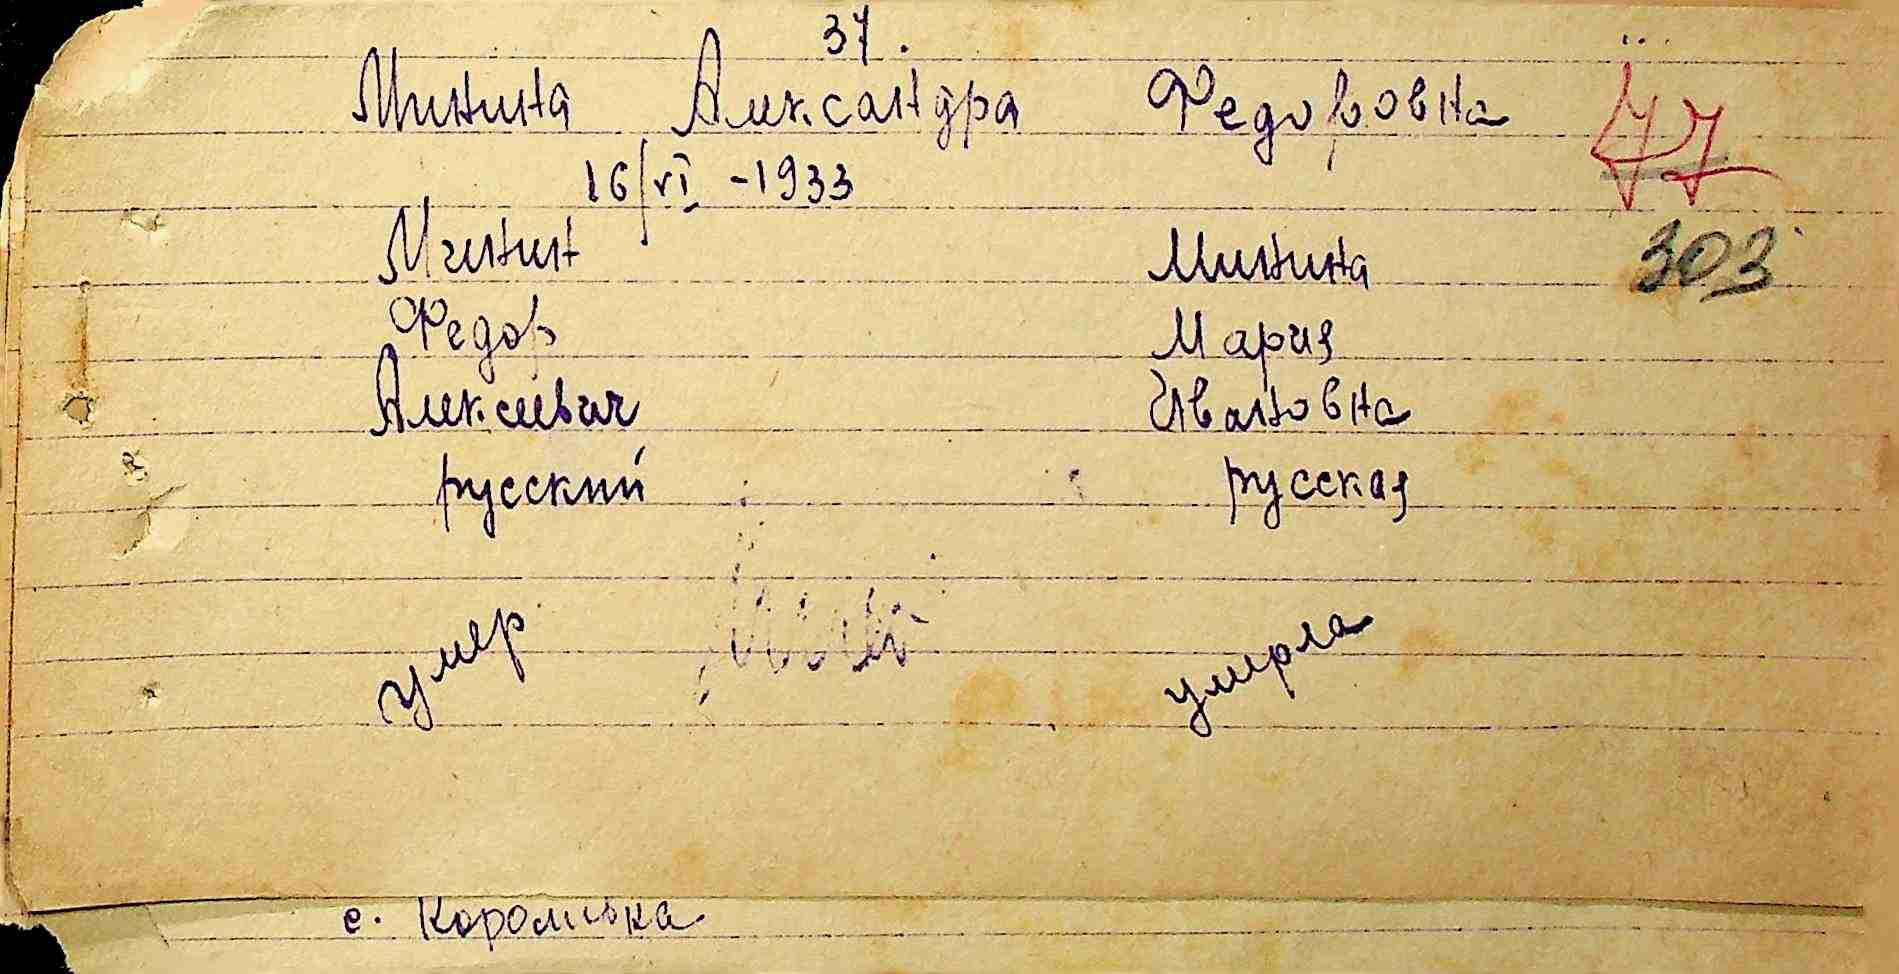 37.
Минина Александра Федоровна
77
16/VI -1933
303
Минин Минина
Федор Мария
Алексеевич Ивановна
русский русская
умер умерла
с.